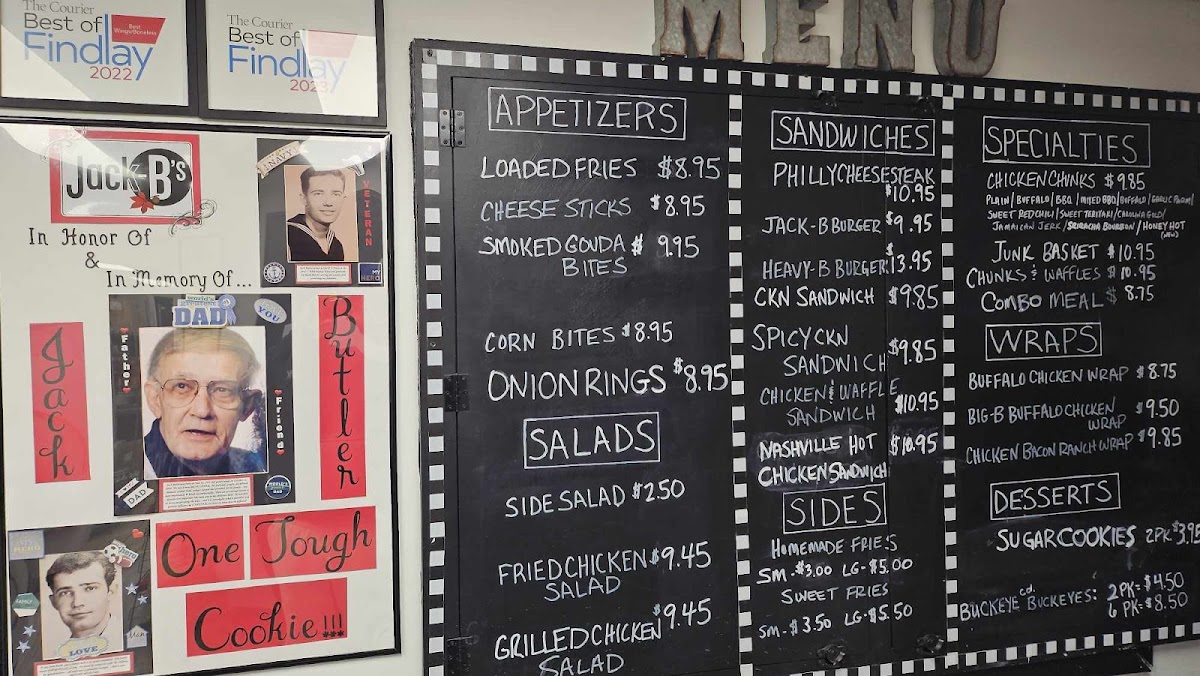 The Courier
Best of
Findlay
2022
Best
Wings/Boneless
The Courier
Best of
Findlay
2023
Jack B's
In Honor Of
&
In Memory Of...
NAVY
VETERAN
MY
HERO
DAD
YOU
Father
Friend
Jack
Butler
DAD
DAD
One Tough
Cookie!!!
HERO
FAMILY
LOVE
MENU
APPETIZERS
LOADED FRIES $8.95
CHEESE STICKS $8.95
SMOKED GOUDA $9.95
BITES
CORN BITES $8.95
ONION RINGS $8.95
SALADS
SIDE SALAD $2.50
FRIED CHICKEN $9.45
SALAD
GRILLED CHICKEN $9.45
SALAD
SANDWICHES
PHILLY CHEESESTEAK
$10.95
JACK-B BURGER $9.95
HEAVY-B BURGER $13.95
CKN SANDWICH $9.85
SPICY CKN
SANDWICH $9.85
CHICKEN & WAFFLE
SANDWICH $10.95
NASHVILLE HOT $10.95
CHICKEN SANDWICH
SIDES
HOMEMADE FRIES
SM-$3.00 LG-$5.00
SWEET FRIES
SM-$3.50 LG-$5.50
SPECIALTIES
CHICKEN CHUNKS $9.85
PLAIN/BUFFALO/BBQ/MIXED BBQ/BUFFALO/GARLIC PARM/
SWEET RED CHILI/SWEET TERIYAKI/CAROLINA GOLD/
JAMAICAN JERK/SRIRACHA BOURBON/HONEY HOT
(NEW)
JUNK BASKET $10.95
CHUNKS & WAFFLES $10.95
COMBO MEAL $8.75
WRAPS
BUFFALO CHICKEN WRAP $8.75
BIG-B BUFFALO CHICKEN $9.50
WRAP
CHICKEN BACON RANCH WRAP $9.85
DESSERTS
SUGAR COOKIES 2PK $3.95
BUCKEYE cd. BUCKEYES: 2 PK=$4.50
6 PK=$8.50